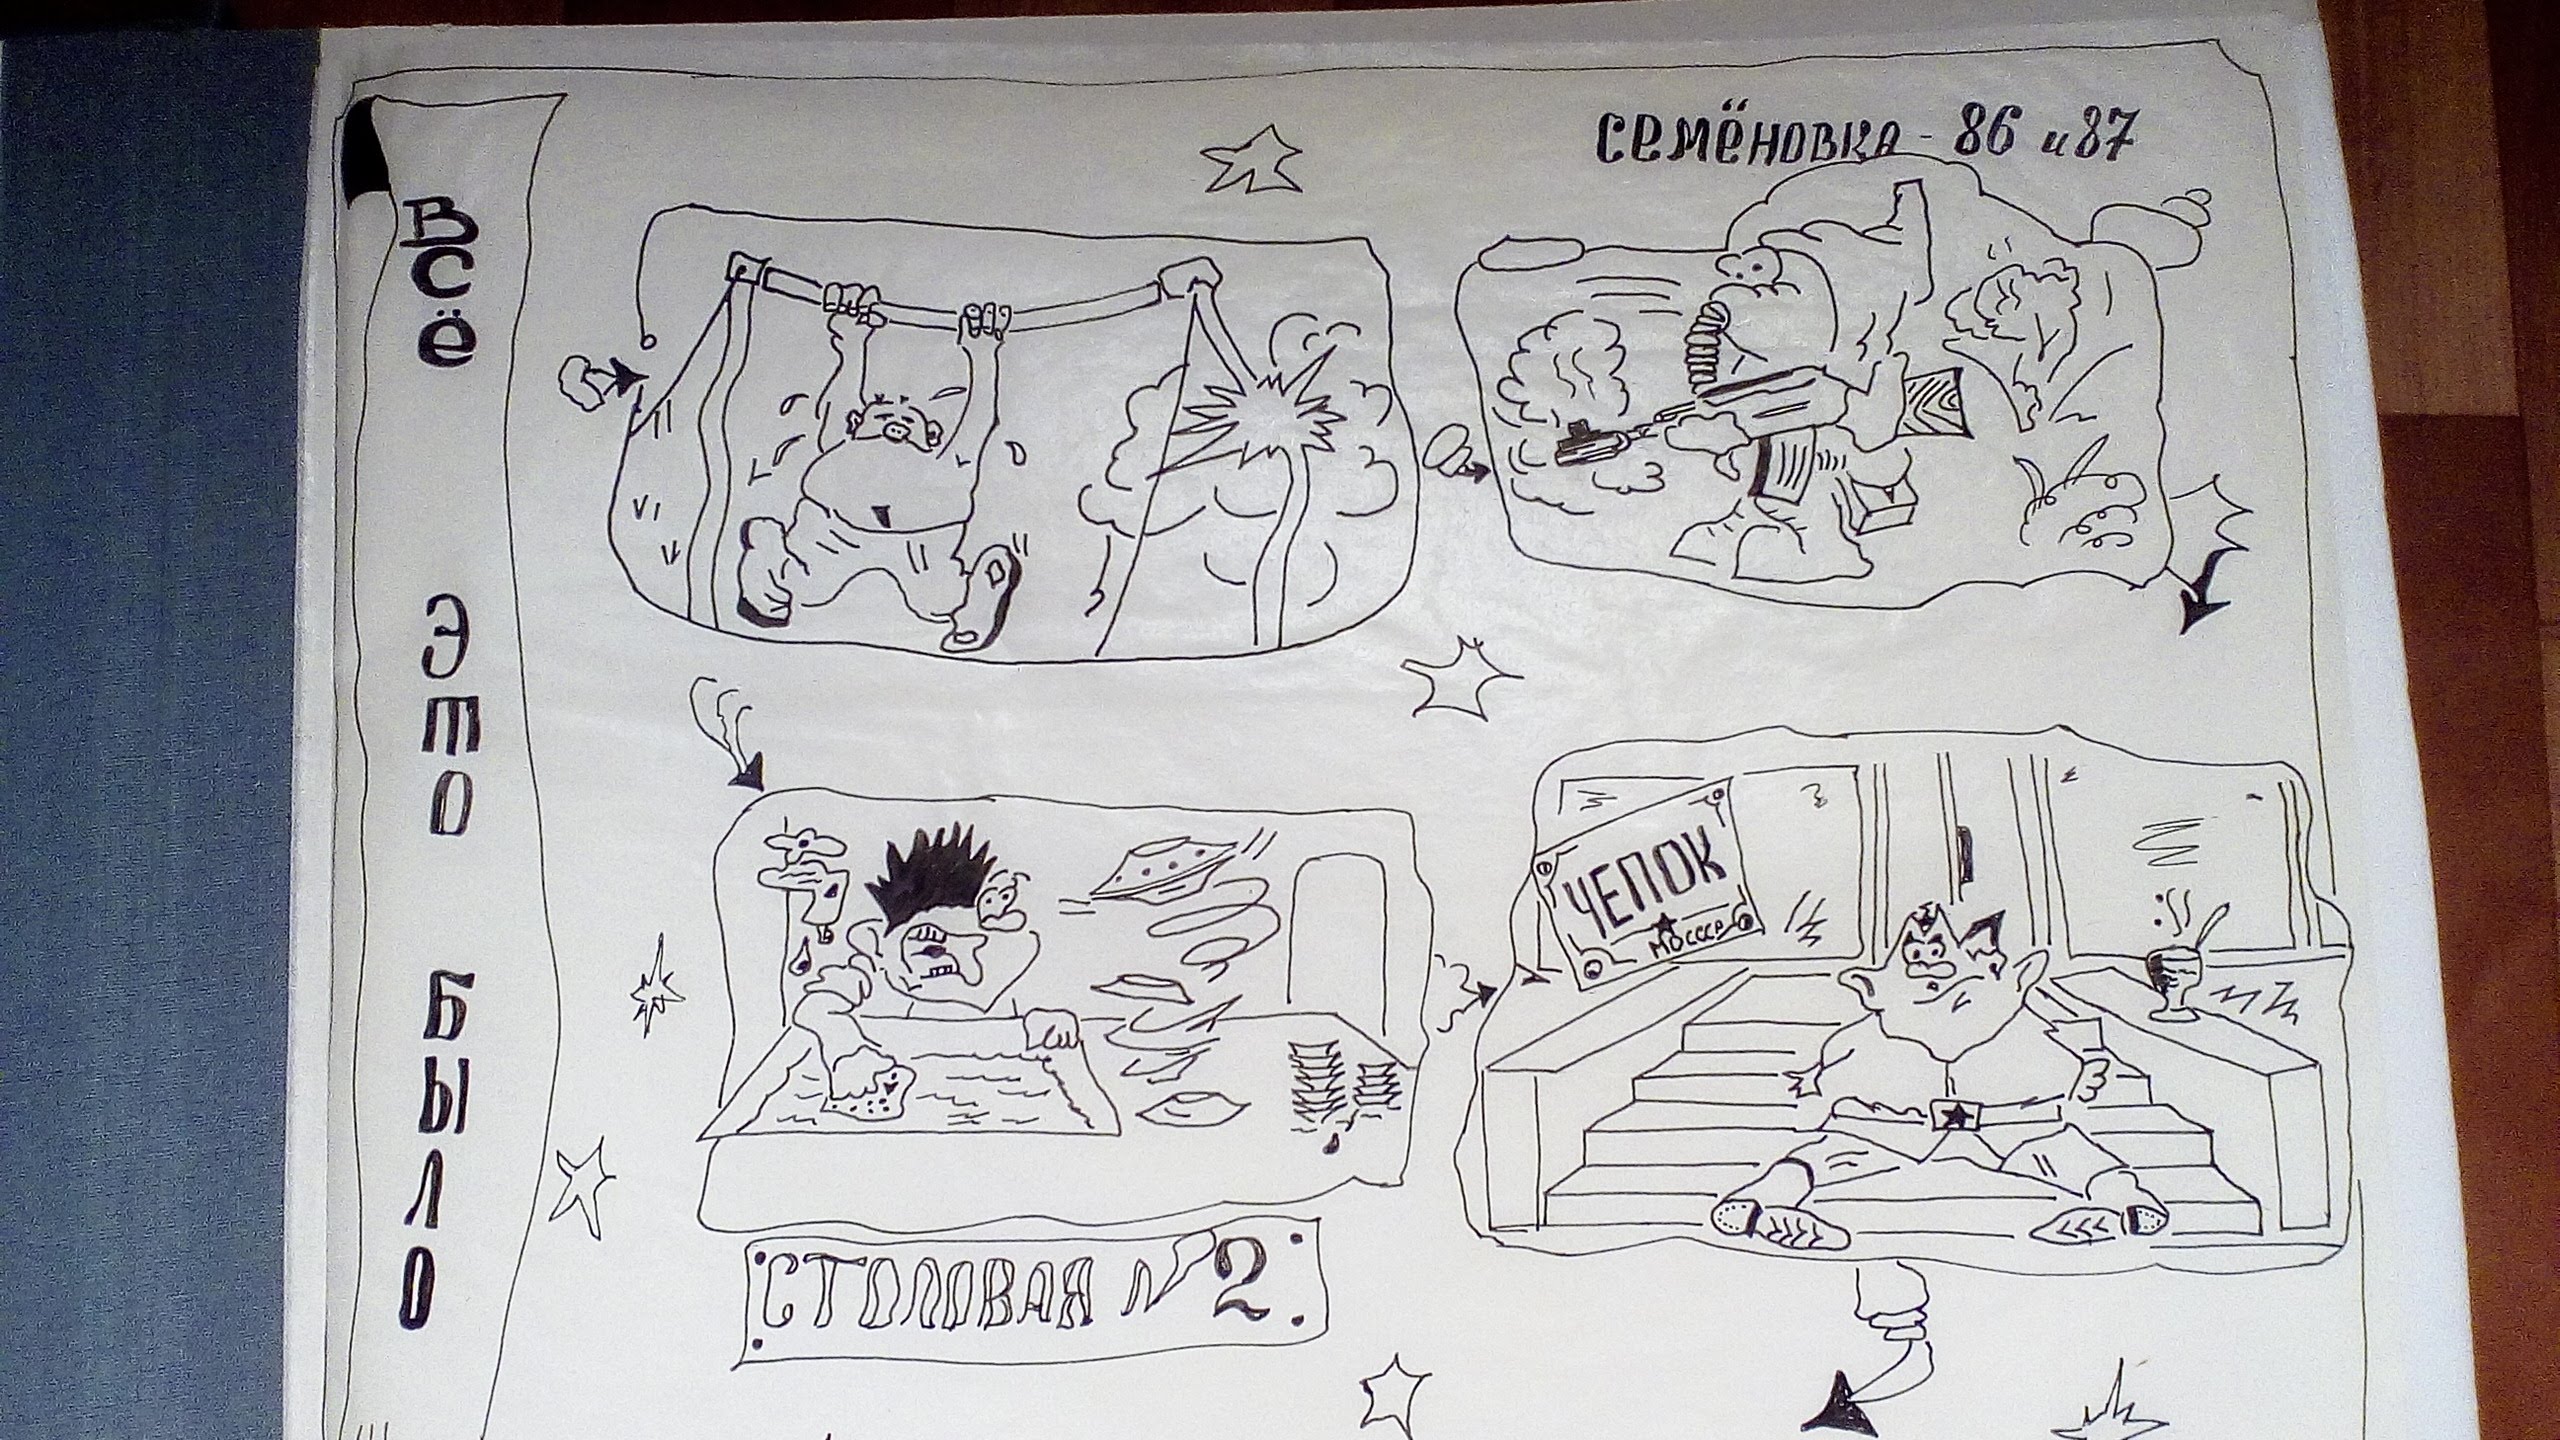 Всё это было
семёновка - 86 и 87
ЧЕПОК
МО СССР
СТОЛОВАЯ № 2